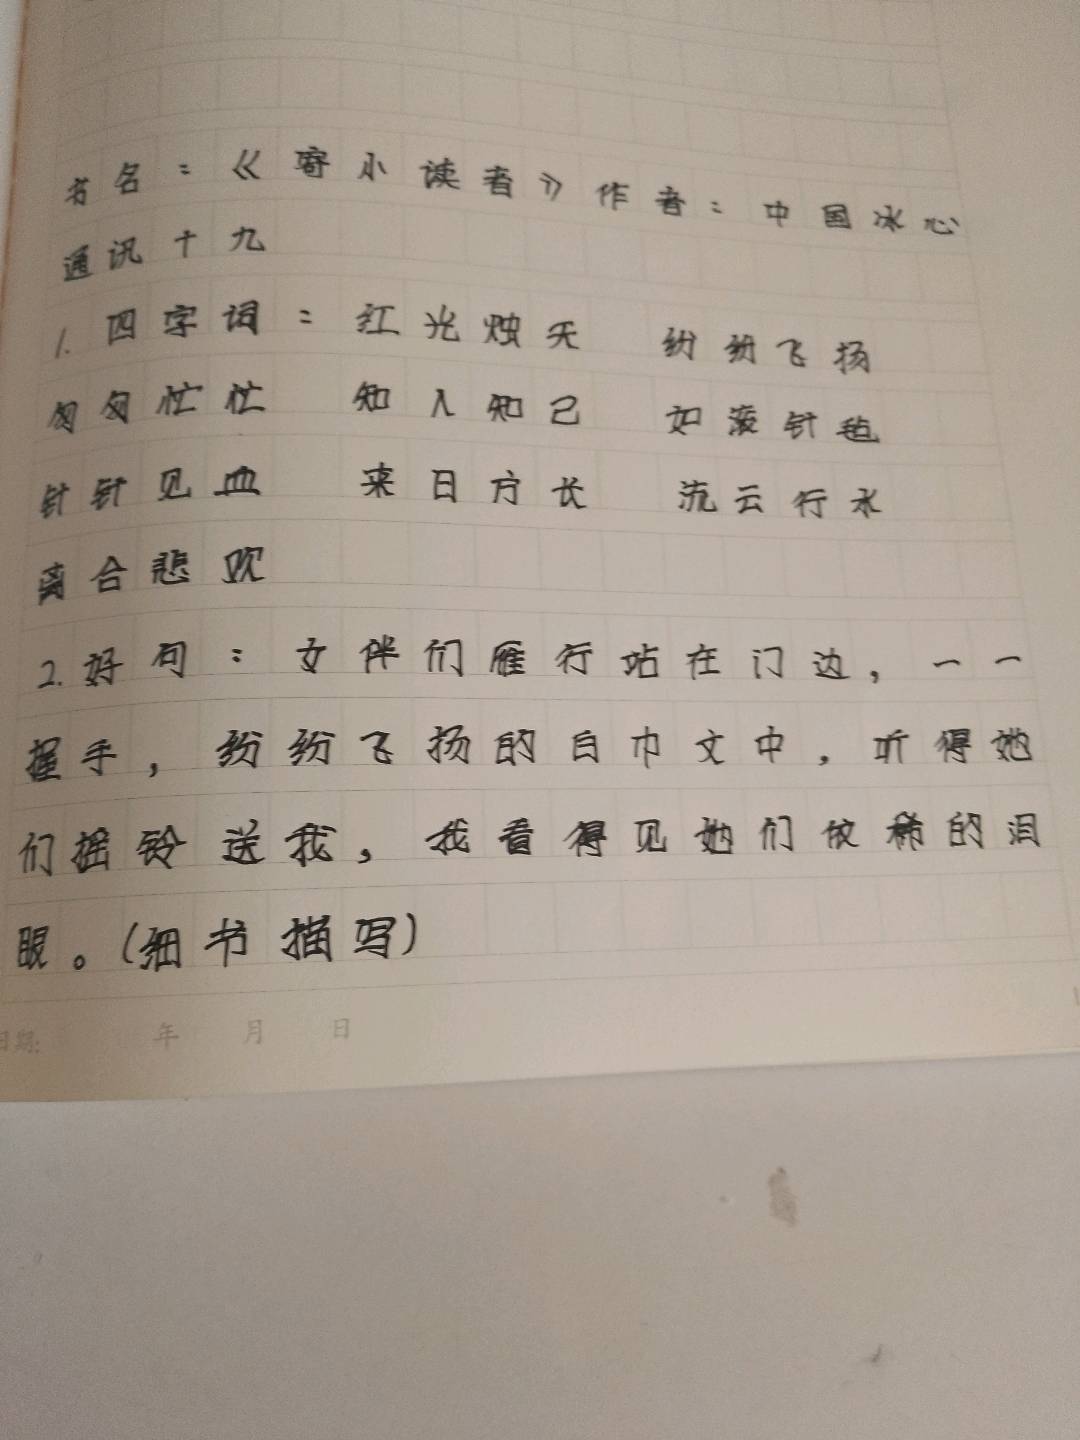 书名:《寄小读者》作者:中国冰心
通讯十九
1.四字词:红光烛天 纷纷飞扬
匆匆忙忙 知人知己 如滚针毡
针针见血 来日方长 流云行水
离合悲欢
2.好句:女伴们雁行站在门边,一一
握手,纷纷飞扬的白巾文中,听得她
们摇铃送我,我看得见她们依稀的泪
眼。(细书描写)
日期: 年 月 日